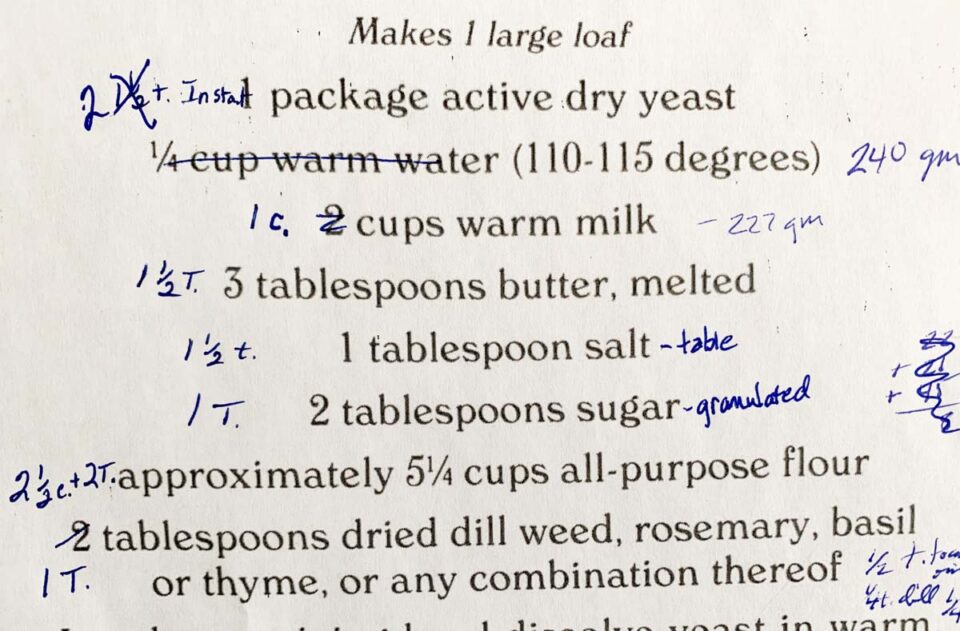 Makes 1 large loaf
2 t. Instant 1 package active dry yeast
¼ cup warm water (110-115 degrees) 240 gm
1 c. 2 cups warm milk - 227 gm
1 ½ T. 3 tablespoons butter, melted
1 ½ t. 1 tablespoon salt - table
1 T. 2 tablespoons sugar - granulated
2 ½ c. + 2 T. approximately 5¼ cups all-purpose flour
2 tablespoons dried dill weed, rosemary, basil
1 T. or thyme, or any combination thereof ½ t.
¼ t. dill ¼
dissolve yeast in warm